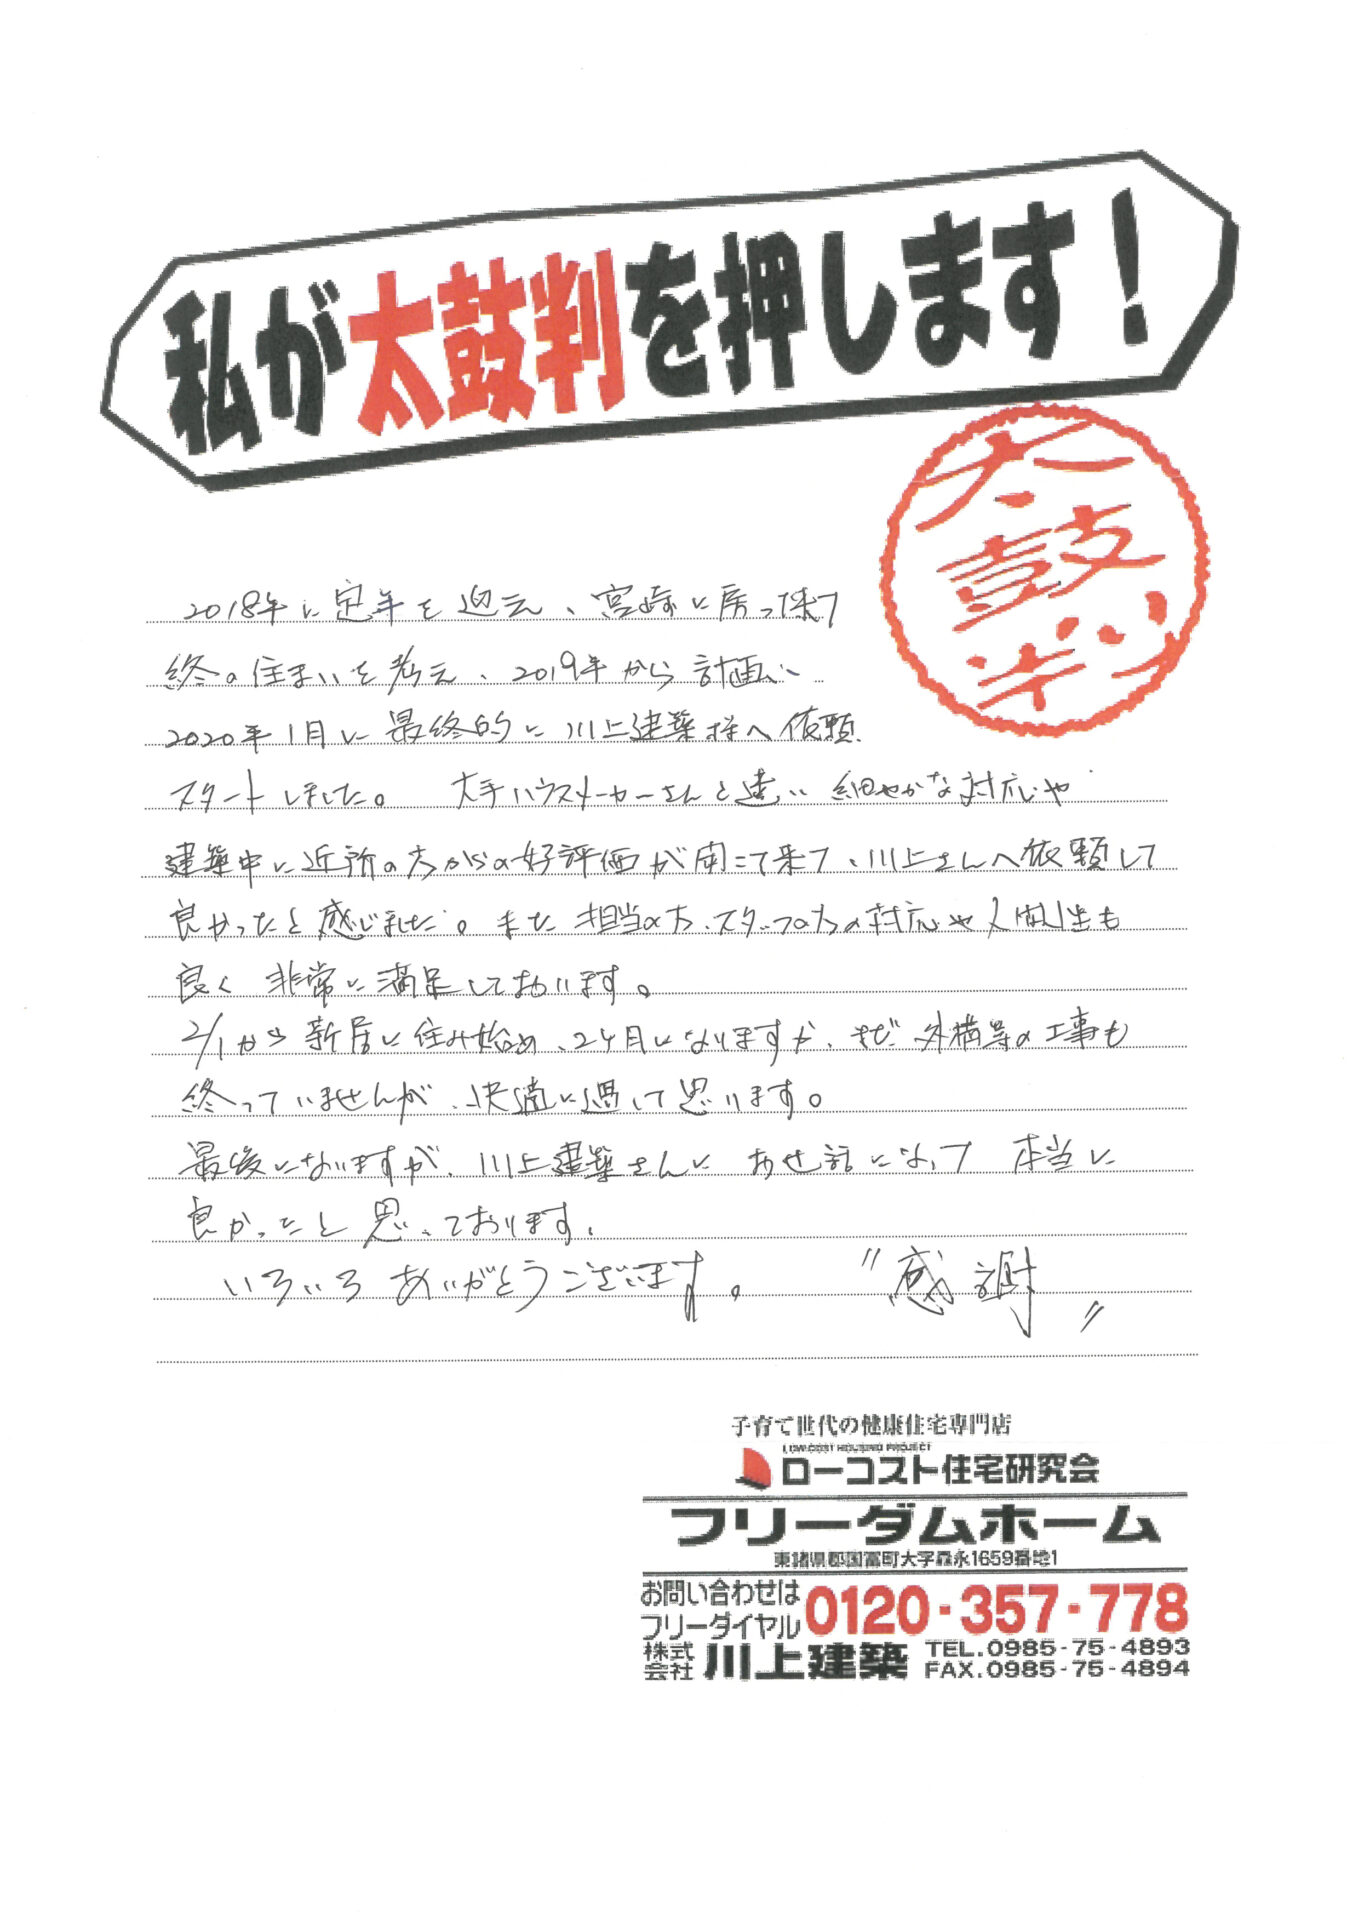 私が太鼓判を押します！
太鼓判
2018年に定年を迎え、宮崎に戻って来て
終の住まいを考え、2019年から計画し
2020年1月に最終的に川上建築様へ依頼
スタートしました。 大手ハウスメーカーさんと違い 細やかな対応や
建築中に近所の方からの好評価が聞こて来て、川上さんへ依頼して
良かったと感じました。また 担当の方、スタッフの方の対応や人間性も
良く 非常に満足しております。
2/1から新居に住み始め、2ヶ月になりますが、まだ 外構等の工事も
終っていませんが、快適に過して居ります。
最後になりますが、川上建築さんに お世話になって 本当に
良かったと思っております。
いろいろ ありがとうございます。 〃感謝〃
子育て世代の健康住宅専門店
LOW COST HOUSING PROJECT
ローコスト住宅研究会
フリーダムホーム
東諸県郡国富町大字森永1659番地1
お問い合わせは
フリーダイヤル 0120-357-778
株式会社 川上建築 TEL.0985-75-4893
FAX.0985-75-4894